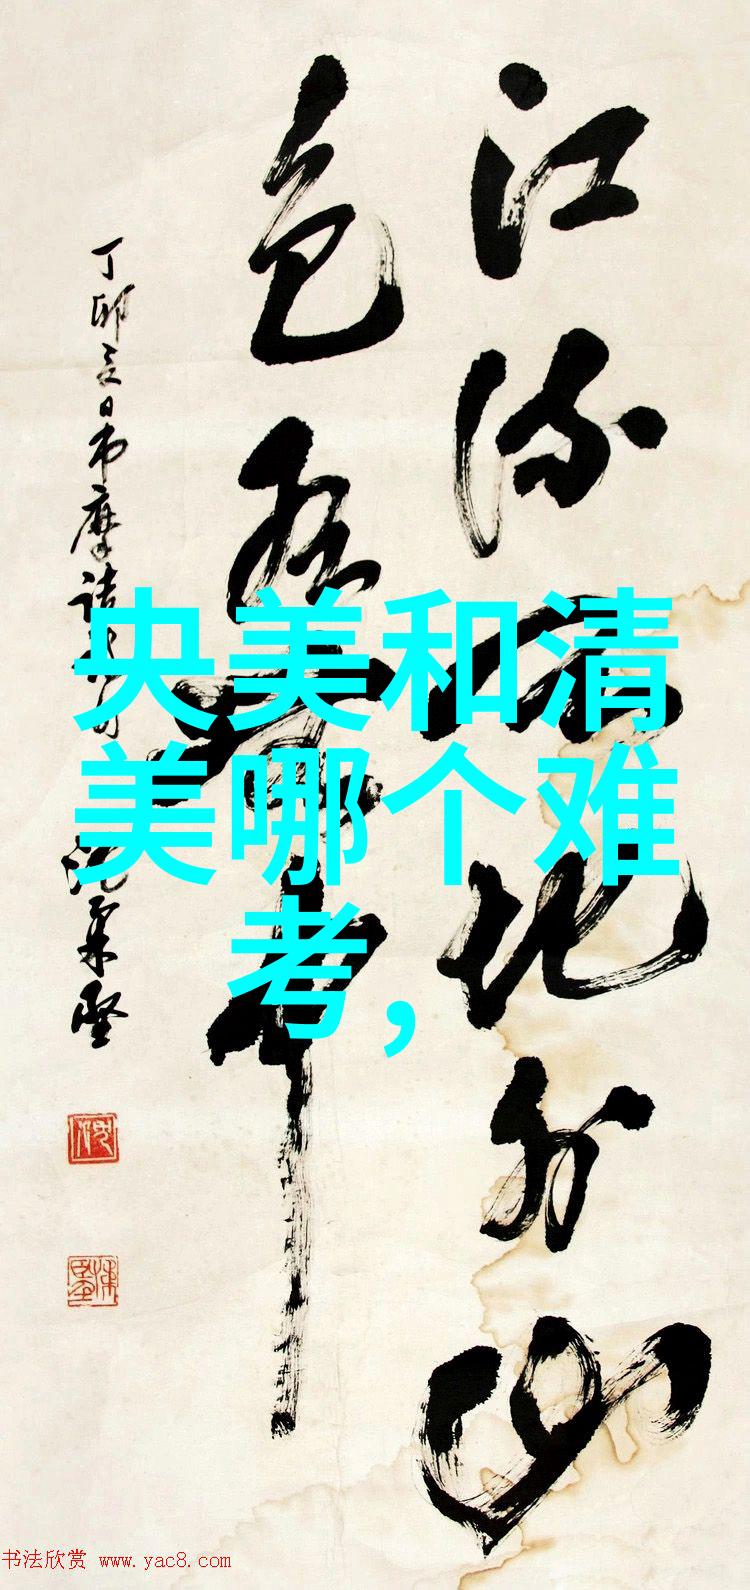 江流天地外山
色有无中
丁卯夏日书摩诘
央美和清
美哪个难
考，
书法欣赏 www.yac8.com